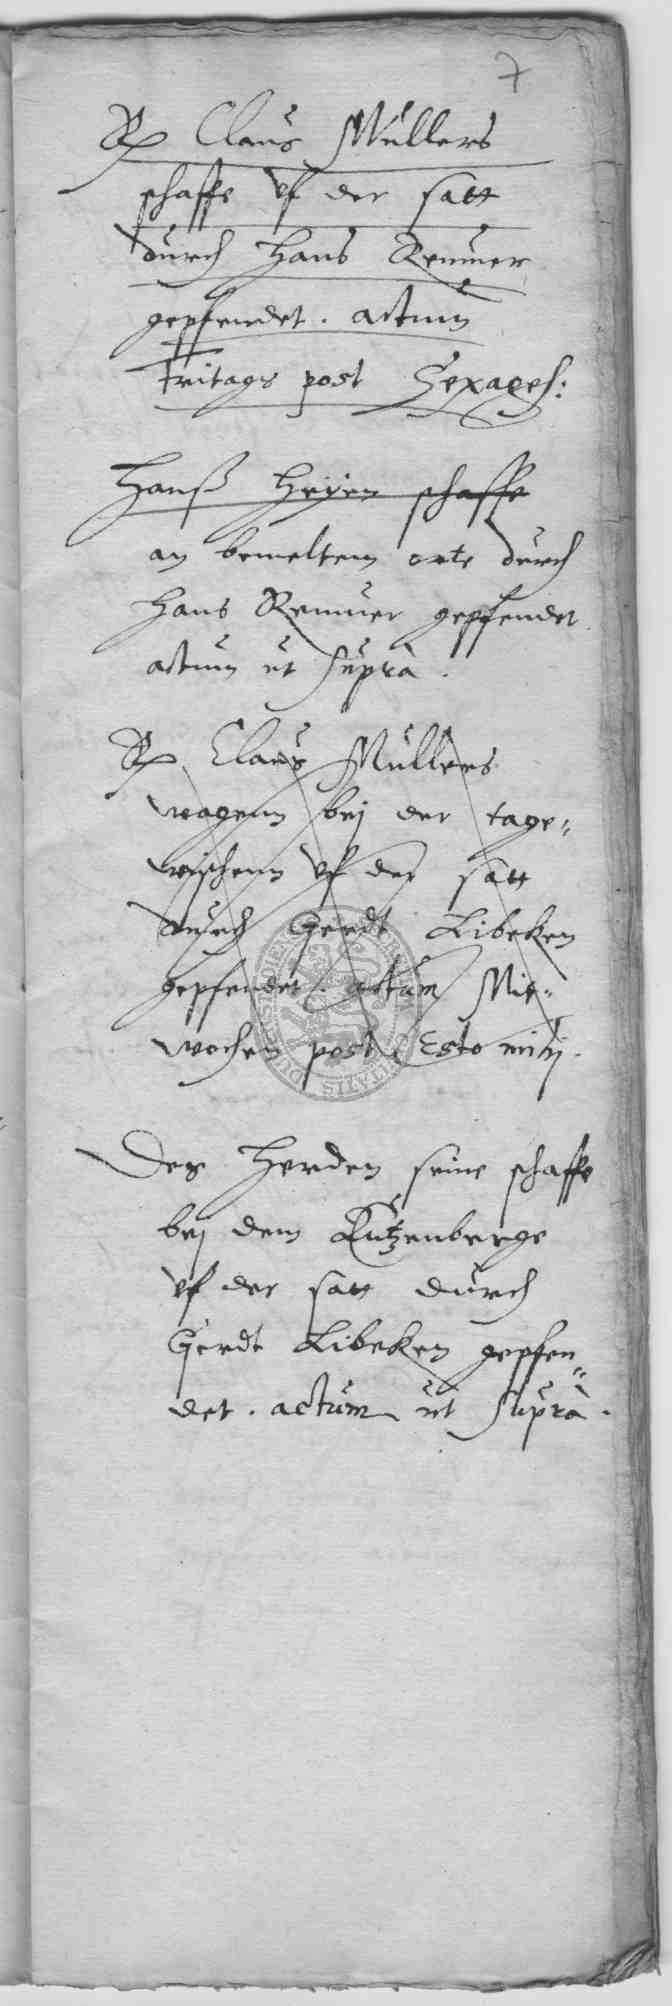 7
Rp Claus Müllers
schaffe vf der satt
durch Hans Remmer
gepfendet. actum
Fritags post Sexages:
Hanß Heyen schaffe
an bemeltem orte durch
Hans Remmer gepfendet
actum ut suprà.
Rp Claus Müllers
wagenn bej der tage„
wischenn vf der satt
durch Gerdt Libeken
gepfendet. actum Mit„
wochen post Esto mihj.
Des Herden seine schaffe
bej dem Kutzenberge
vf der satt durch
Gerdt Libeken gepfen„
det. actum ut suprà.